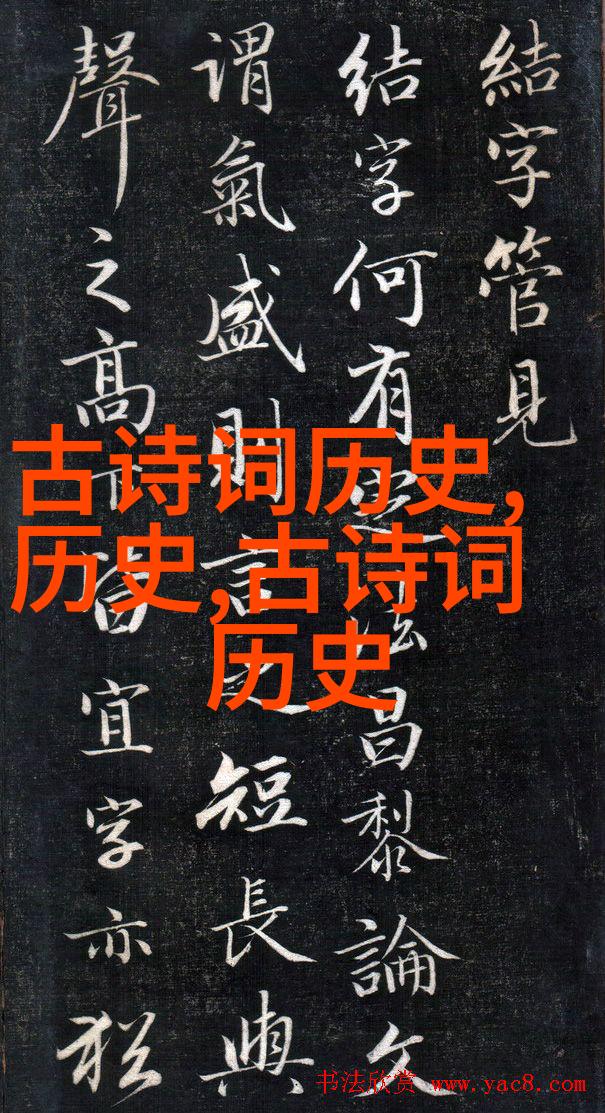 結字管見
结字何有法昌黎論文
謂氣盛則言之短長與
聲之髙下皆宜字亦猶
古诗词历史,
历史,古诗词
历史
书法欣赏 www.yac8.com